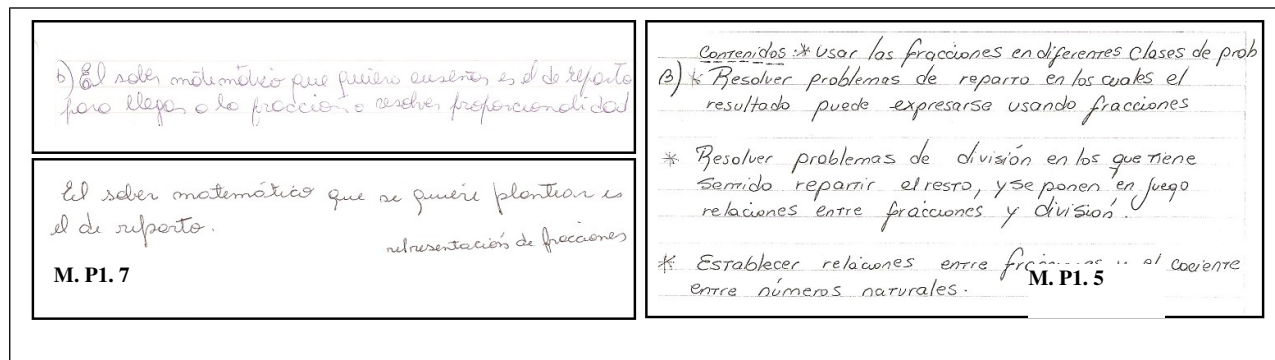 b) El saber matemático que quiero enseñar es el de reparto
para llegar a la fracción o resolver proporcionalidad
El saber matemático que se quiere plantear es
el de reparto.
representación de fracciones
M. P1. 7
Contenidos: * Usar las fracciones en diferentes clases de prob
(3) * Resolver problemas de reparto en los cuales el
resultado puede expresarse usando fracciones
* Resolver problemas de división en los que tiene
sentido repartir el resto, y se ponen en juego
relaciones entre fracciones y división.
* Establecer relaciones entre el cociente
M. P1. 5
entre números naturales.